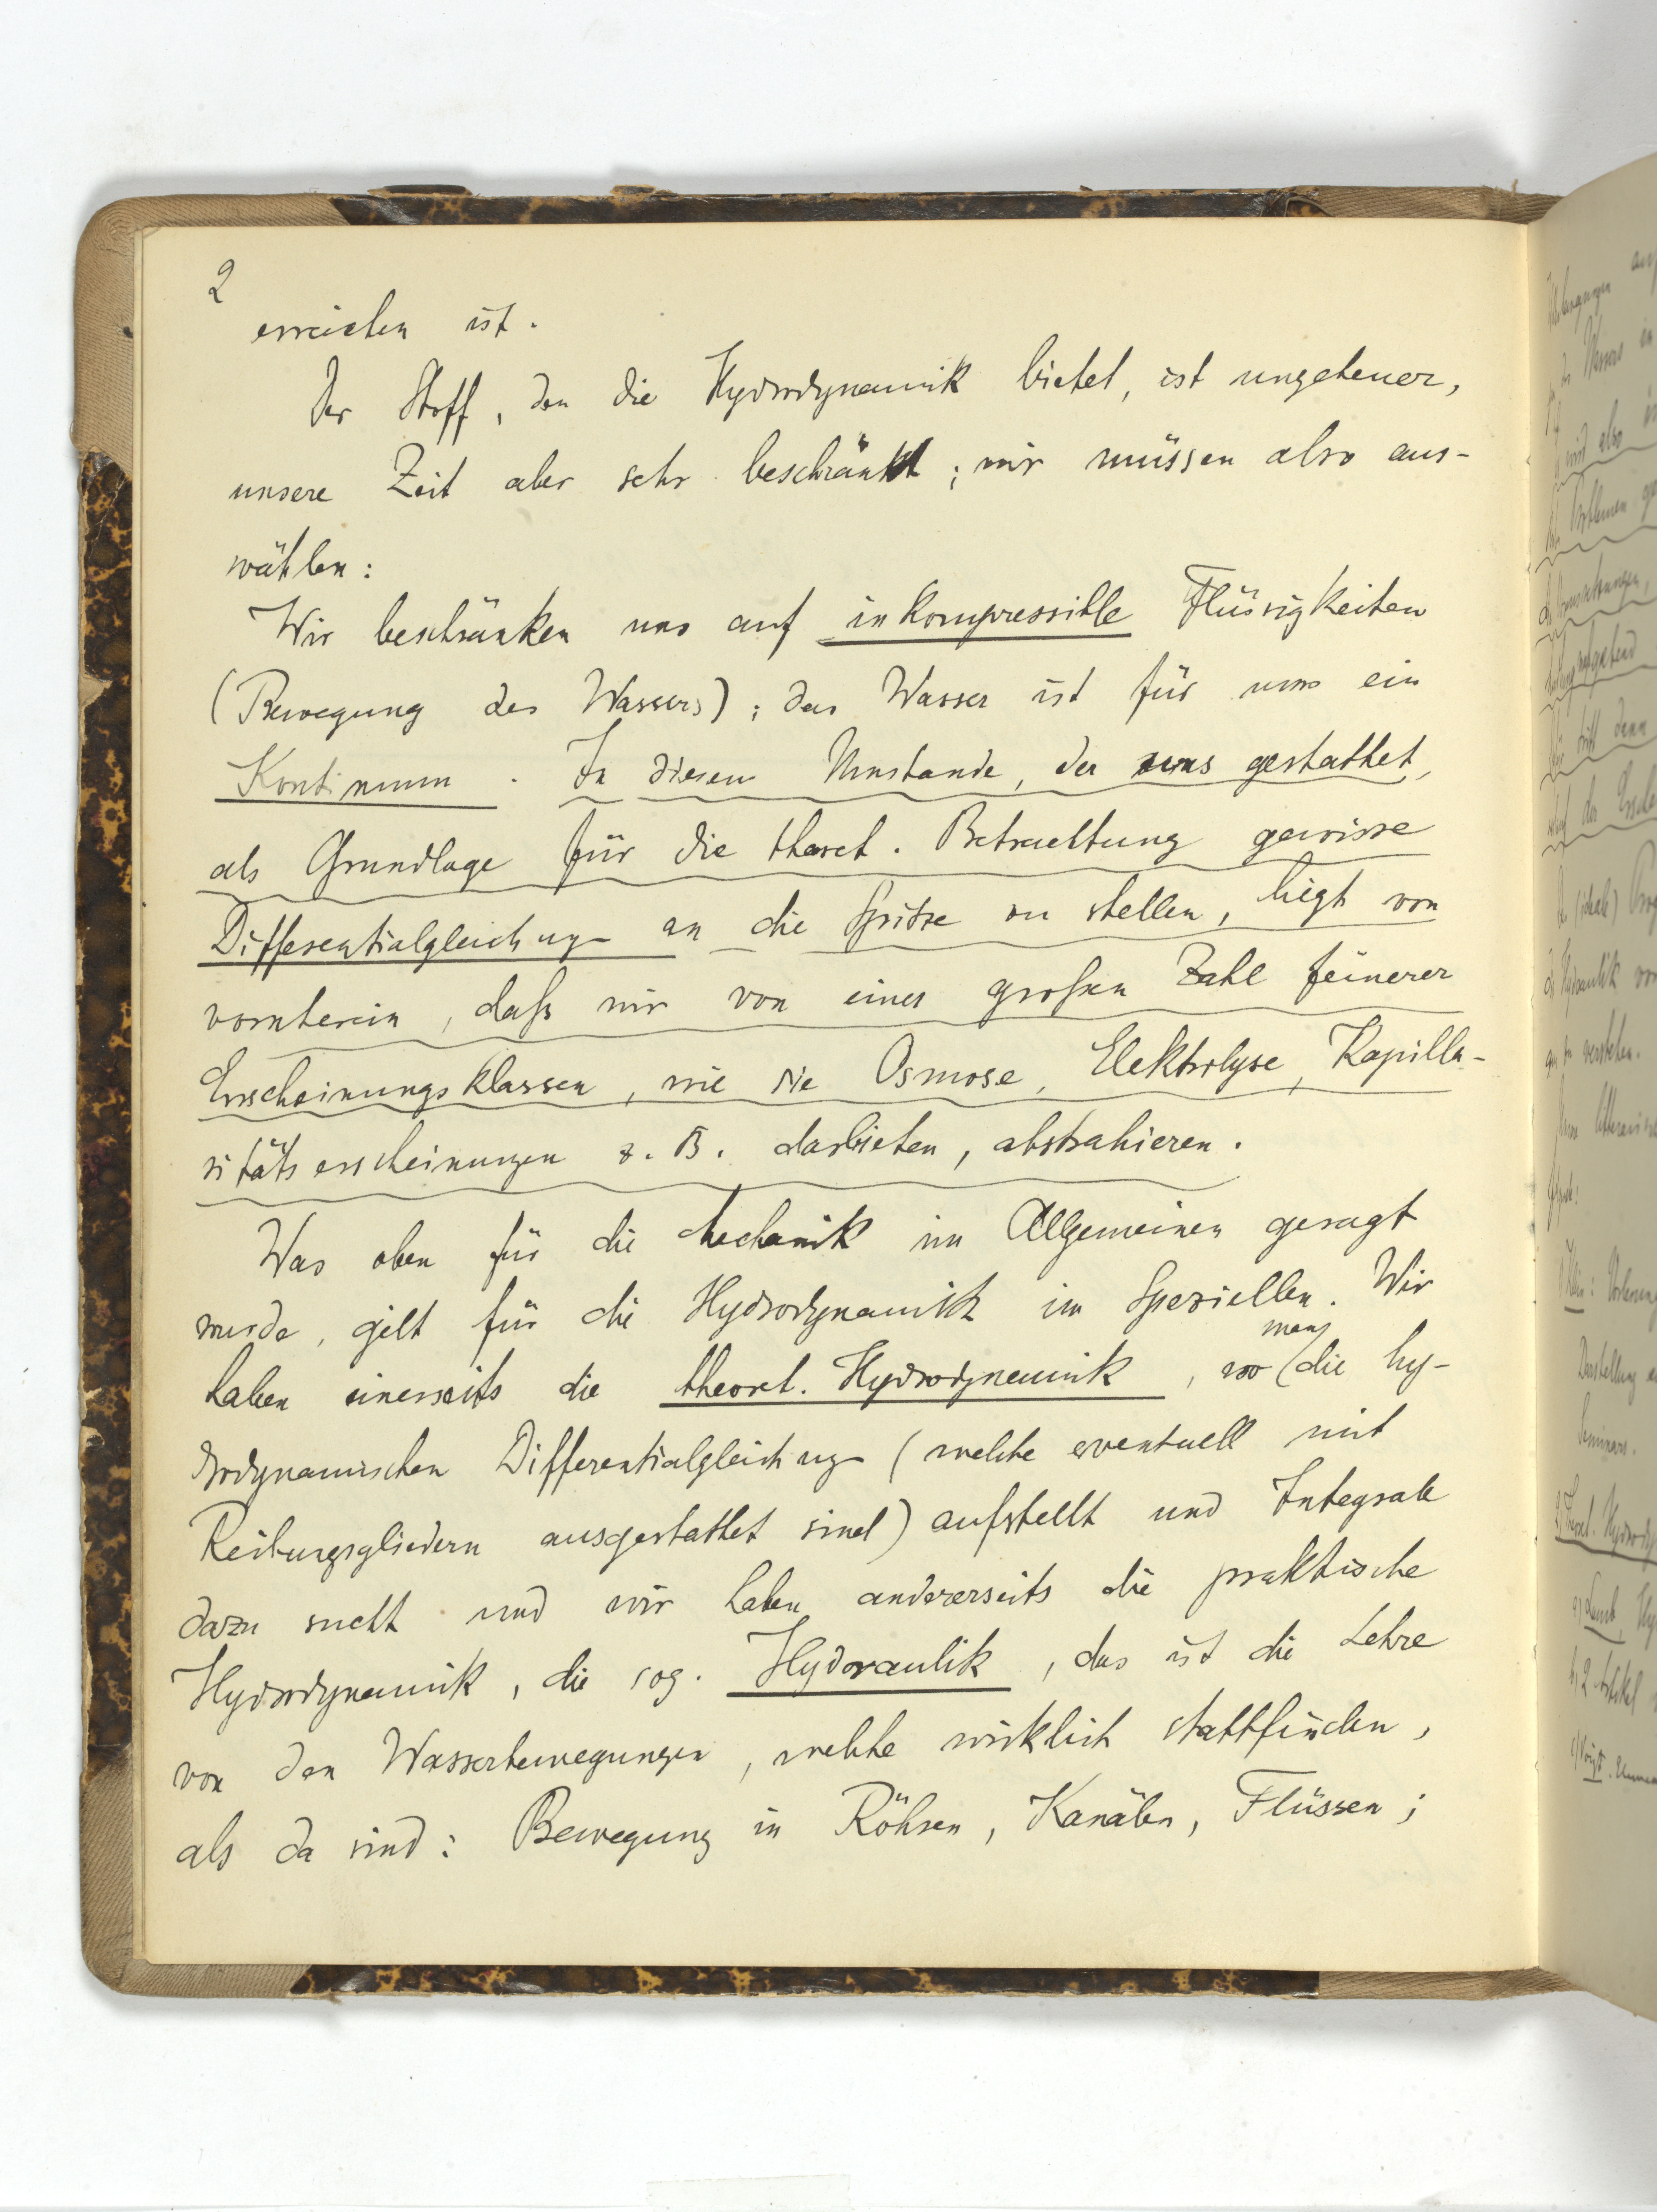 2
erreichen ist.
Der Stoff, den die Hydrodynamik bietet, ist ungeheuer,
unsere Zeit aber sehr beschränkt; wir müssen also aus-
wählen:
Wir beschränken uns auf inkompressible Flüssigkeiten
(Bewegung des Wassers); das Wasser ist für uns ein
Kontinuum. In diesem Umstande, der uns gestattet,
als Grundlage für die theoret. Betrachtung gewisse
Differentialgleichung an die Spitze zu stellen, liegt von
vornherein, daß wir von einer großen Zahl feinerer
Erscheinungsklassen, wie sie Osmose, Elektrolyse, Kapilla-
ritätserscheinungen z. B. darbieten, abstrahieren.
Was oben für die Mechanik im Allgemeinen gesagt
wurde, gilt für die Hydrodynamik im Speziellen. Wir
haben einerseits die theoret. Hydrodynamik, wo man die hy-
drodynamischen Differentialgleichung (welche eventuell mit
Reibungsgliedern ausgestattet sind) aufstellt und Integrale
dazu sucht und wir haben andererseits die praktische
Hydrodynamik, die sog. Hydraulik, das ist die Lehre
von den Wasserbewegungen, welche wirklich stattfinden,
als da sind: Bewegung in Röhren, Kanälen, Flüssen;